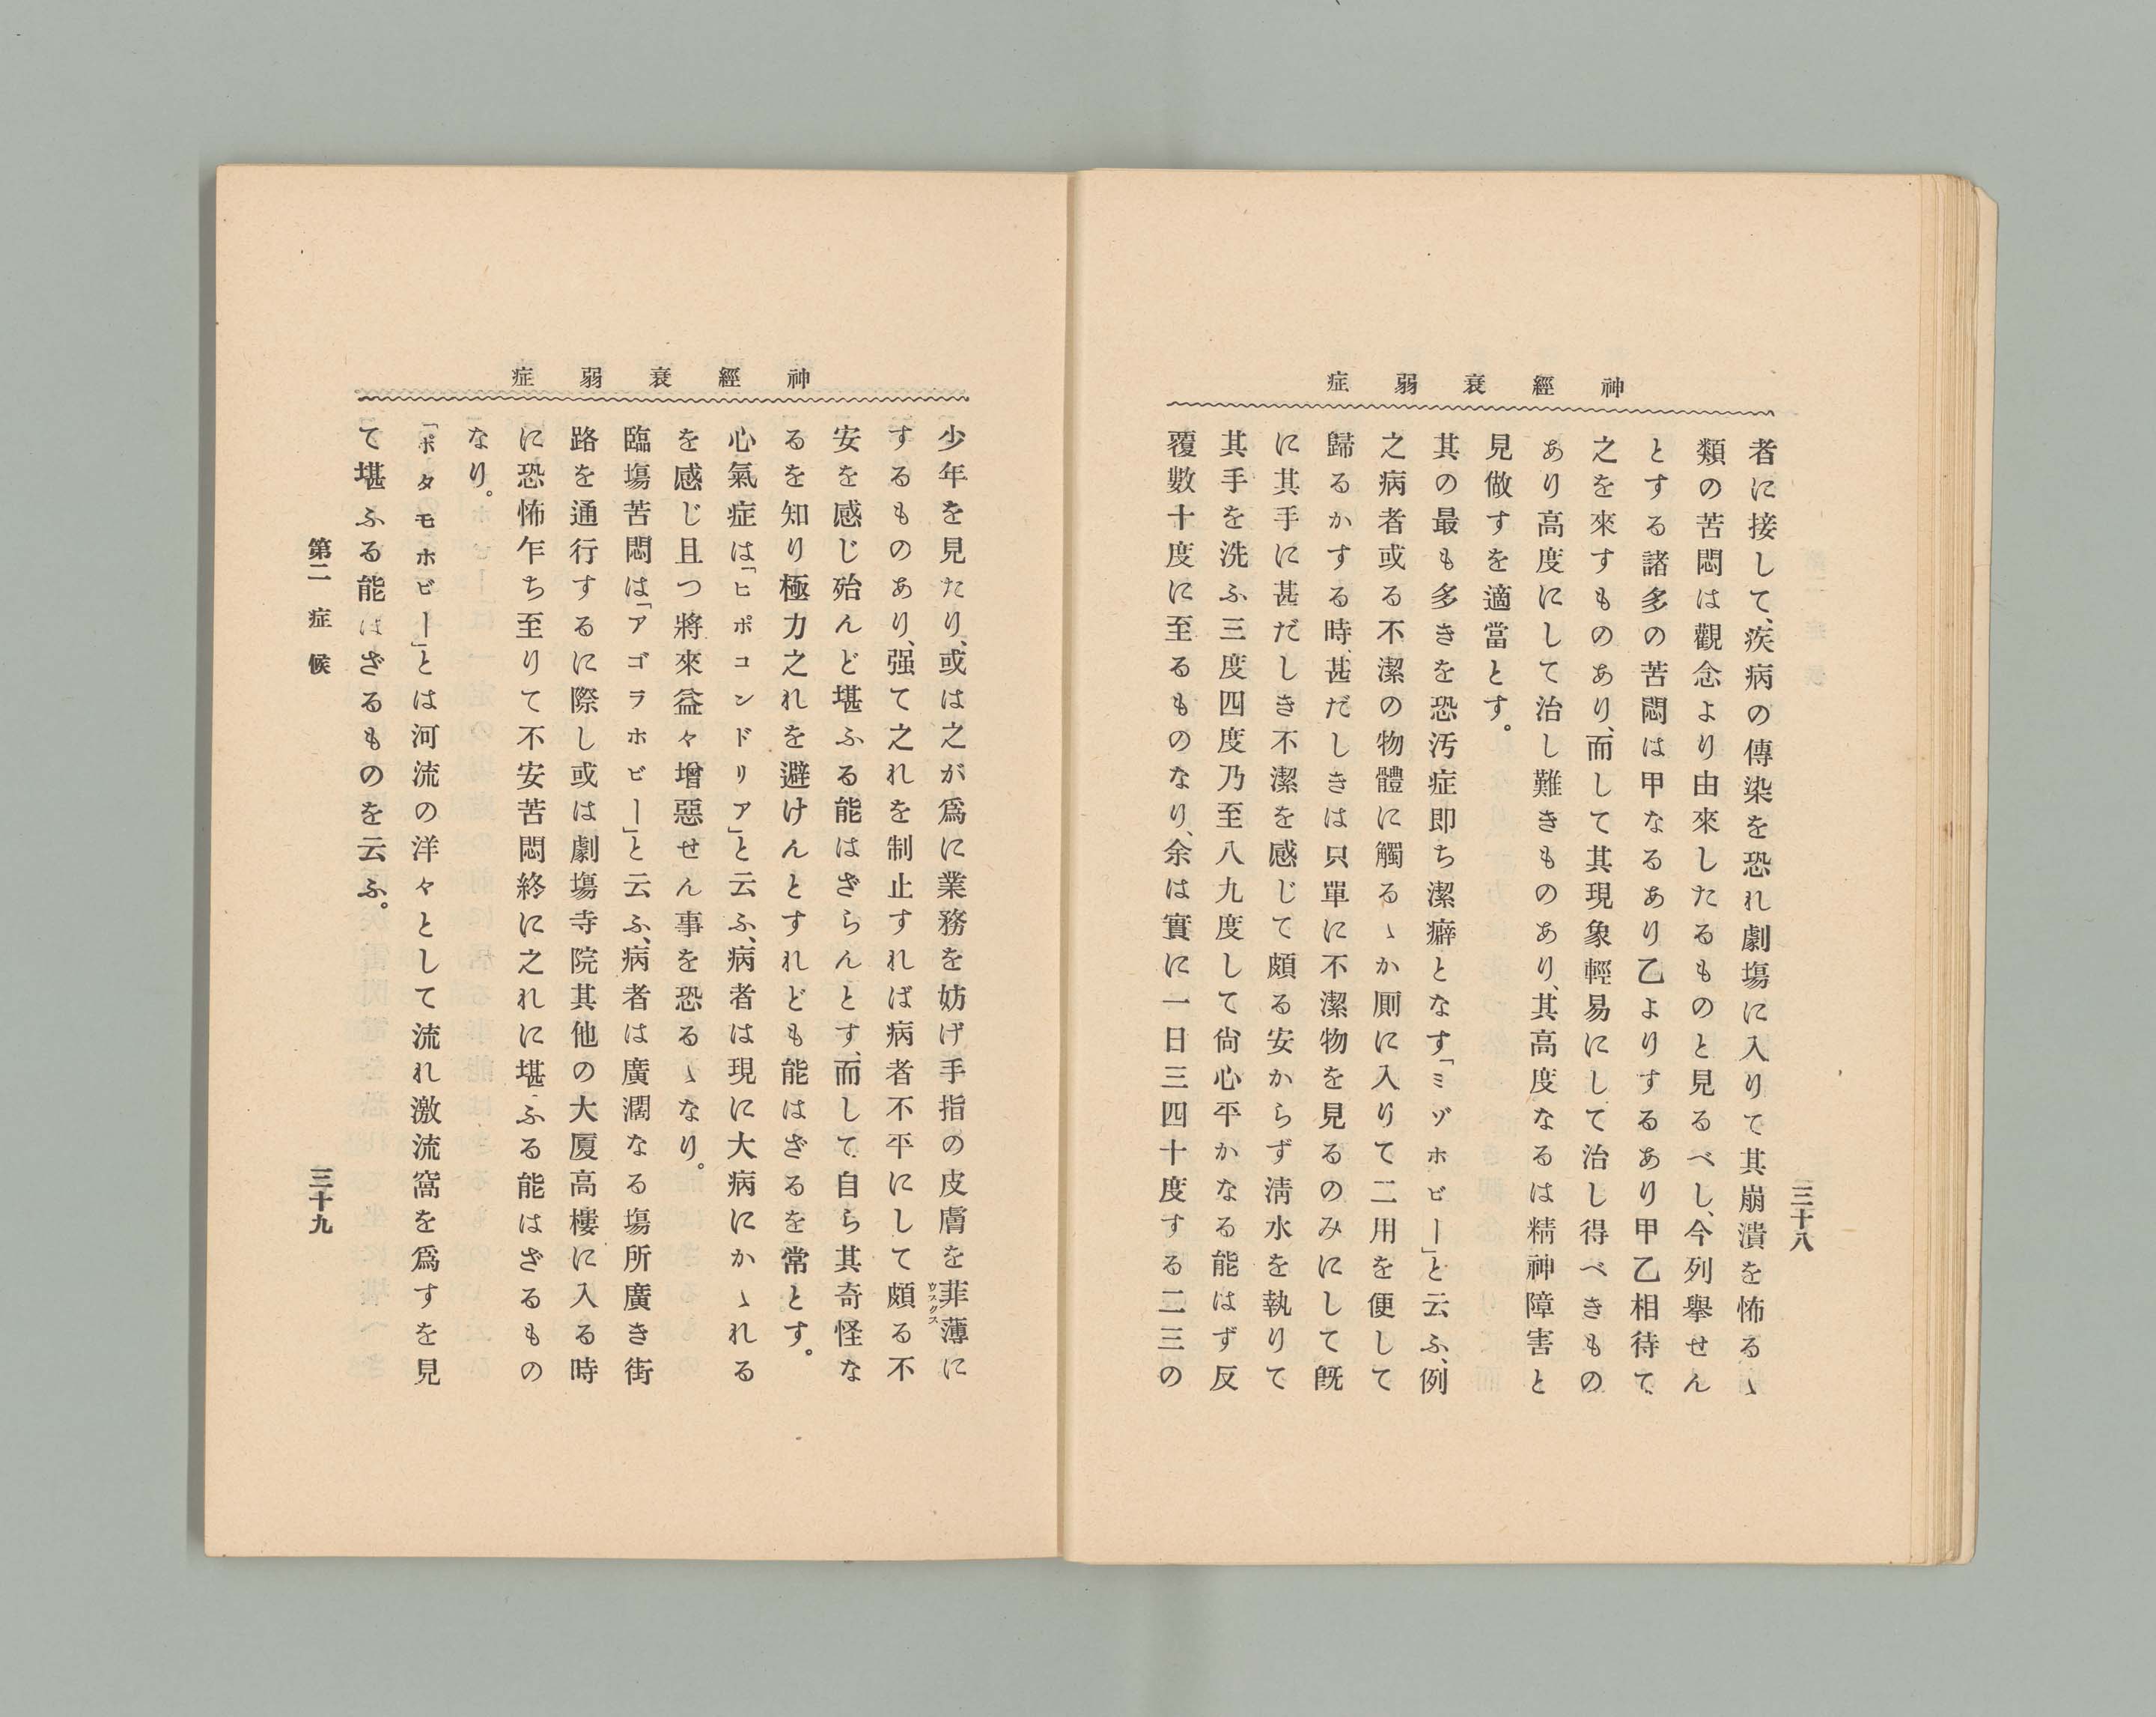 神經衰弱症
三十八
者に接して、疾病の傳染を恐れ劇塲に入りて其崩潰を怖るゝ
類の苦悶は觀念より由來したるものと見るべし、今列擧せん
とする諸多の苦悶は甲なるあり乙よりするあり甲乙相待て
之を來すものあり、而して其現象輕易にして治し得べきもの
あり高度にして治し難きものあり、其高度なるは精神障害と
見做すを適當とす。
其の最も多きを恐汚症即ち潔癖となす「ミゾホビー」と云ふ、例
之病者或る不潔の物體に觸るゝか厠に入りて二用を便して
歸るかする時、甚だしきは只單に不潔物を見るのみにして既
に其手に甚だしき不潔を感じて頗る安からず淸水を執りて
其手を洗ふ三度四度乃至八九度して尙心平かなる能はず反
覆數十度に至るものなり、余は實に一日三四十度する二三の
神經衰弱症
少年を見たり、或は之が爲に業務を妨げ手指の皮膚を菲薄に
ウスクス
するものあり、强て之れを制止すれば病者不平にして頗る不
安を感じ殆んど堪ふる能はざらんとす、而して自ら其奇怪な
るを知り極力之れを避けんとすれども能はざるを常とす。
心氣症は「ヒポコンドリア」と云ふ、病者は現に大病にかゝれる
を感じ且つ將來益々增惡せん事を恐るゝなり。
臨塲苦悶は「アゴラホビー」と云ふ、病者は廣濶なる塲所廣き街
路を通行するに際し或は劇塲寺院其他の大厦高樓に入る時
に恐怖乍ち至りて不安苦悶終に之れに堪ふる能はざるもの
なり。
「ポタモホビー」とは河流の洋々として流れ激流窩を爲すを見
て堪ふる能はざるものを云ふ。
第二 症候
三十九